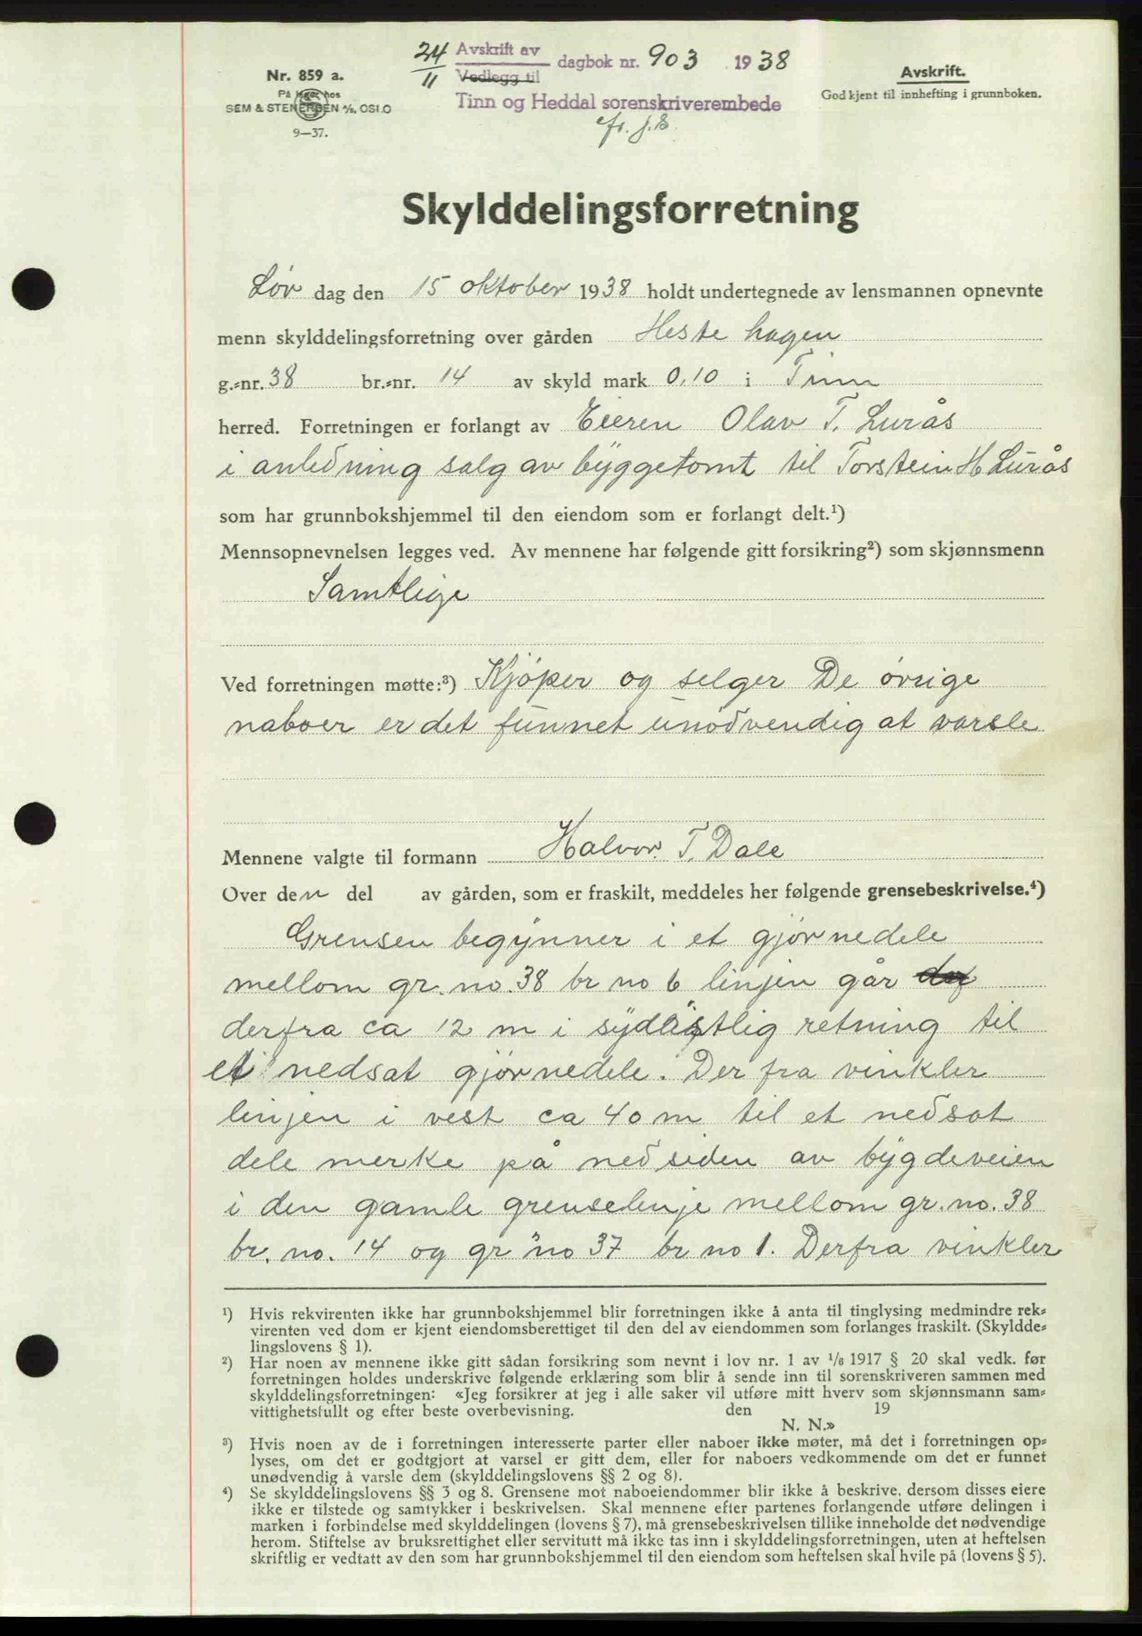 24/11 Avskrift av
Vedlegg til dagbok nr. 903 1938
Tinn og Heddal sorenskriverembede
Nr. 859 a.
På lager hos
SEM & STENERSEN A/S, OSLO
9—37.
Avskrift.
Godkjent til innhefting i grunnboken.
Skylddelingsforretning
Lør dag den 15 oktober 1938 holdt undertegnede av lensmannen opnevnte
menn skylddelingsforretning over gården Heste hagen
g.-nr. 38 br.-nr. 14 av skyld mark 0,10 i Tinn
herred. Forretningen er forlangt av Eieren Olav T. Lurås
i anledning salg av byggetomt til Torstein H Lurås
som har grunnbokshjemmel til den eiendom som er forlangt delt.¹)
Mennsopnevnelsen legges ved. Av mennene har følgende gitt forsikring²) som skjønnsmenn
Samtlige
Ved forretningen møtte:³) Kjöper og selger De övrige
naboer er det funnet unödvendig at varsle
Mennene valgte til formann Halvor T. Dale
Over den del av gården, som er fraskilt, meddeles her følgende grensebeskrivelse.⁴)
Grensen begynner i et gjørnedele
mellom gr. no. 38 br no 6 linjen går
derfra ca 12 m i sydöstlig retning til
et nedsat gjørnedele. Der fra vinkler
linjen i vest ca 40 m til et nedsat
dele merke på nedsiden av bygdeveien
i den gamle grenselinje mellom gr. no. 38
br. no. 14 og gr no 37 br no 1. Derfra vinkler
¹) Hvis rekvirenten ikke har grunnbokshjemmel blir forretningen ikke å anta til tinglysing medmindre rek-
virenten ved dom er kjent eiendomsberettiget til den del av eiendommen som forlanges fraskilt. (Skyldde-
lingslovens § 1).
²) Har noen av mennene ikke gitt sådan forsikring som nevnt i lov nr. 1 av 1/8 1917 § 20 skal vedk. før
forretningen holdes underskrive følgende erklæring som blir å sende inn til sorenskriveren sammen med
skylddelingsforretningen: «Jeg forsikrer at jeg i alle saker vil utføre mitt hverv som skjønnsmann sam-
vittighetsfullt og efter beste overbevisning. den 19
N. N.»
³) Hvis noen av de i forretningen interesserte parter eller naboer ikke møter, må det i forretningen op-
lyses, om det er godtgjort at varsel er gitt dem, eller for naboers vedkommende om det er funnet
unødvendig å varsle dem (skylddelingslovens §§ 2 og 8).
⁴) Se skylddelingslovens §§ 3 og 8. Grensene mot naboeiendommer blir ikke å beskrive, dersom disses eiere
ikke er tilstede og samtykker i beskrivelsen. Skal mennene efter partenes forlangende utføre delingen i
marken i forbindelse med skylddelingen (lovens § 7), må grensebeskrivelsen tillike inneholde det nødvendige
herom. Stiftelse av bruksrettighet eller servitutt må ikke tas inn i skylddelingsforretningen, uten at heftelsen
skriftlig er vedtatt av den som har grunnbokshjemmel til den eiendom som heftelsen skal hvile på (lovens § 5).